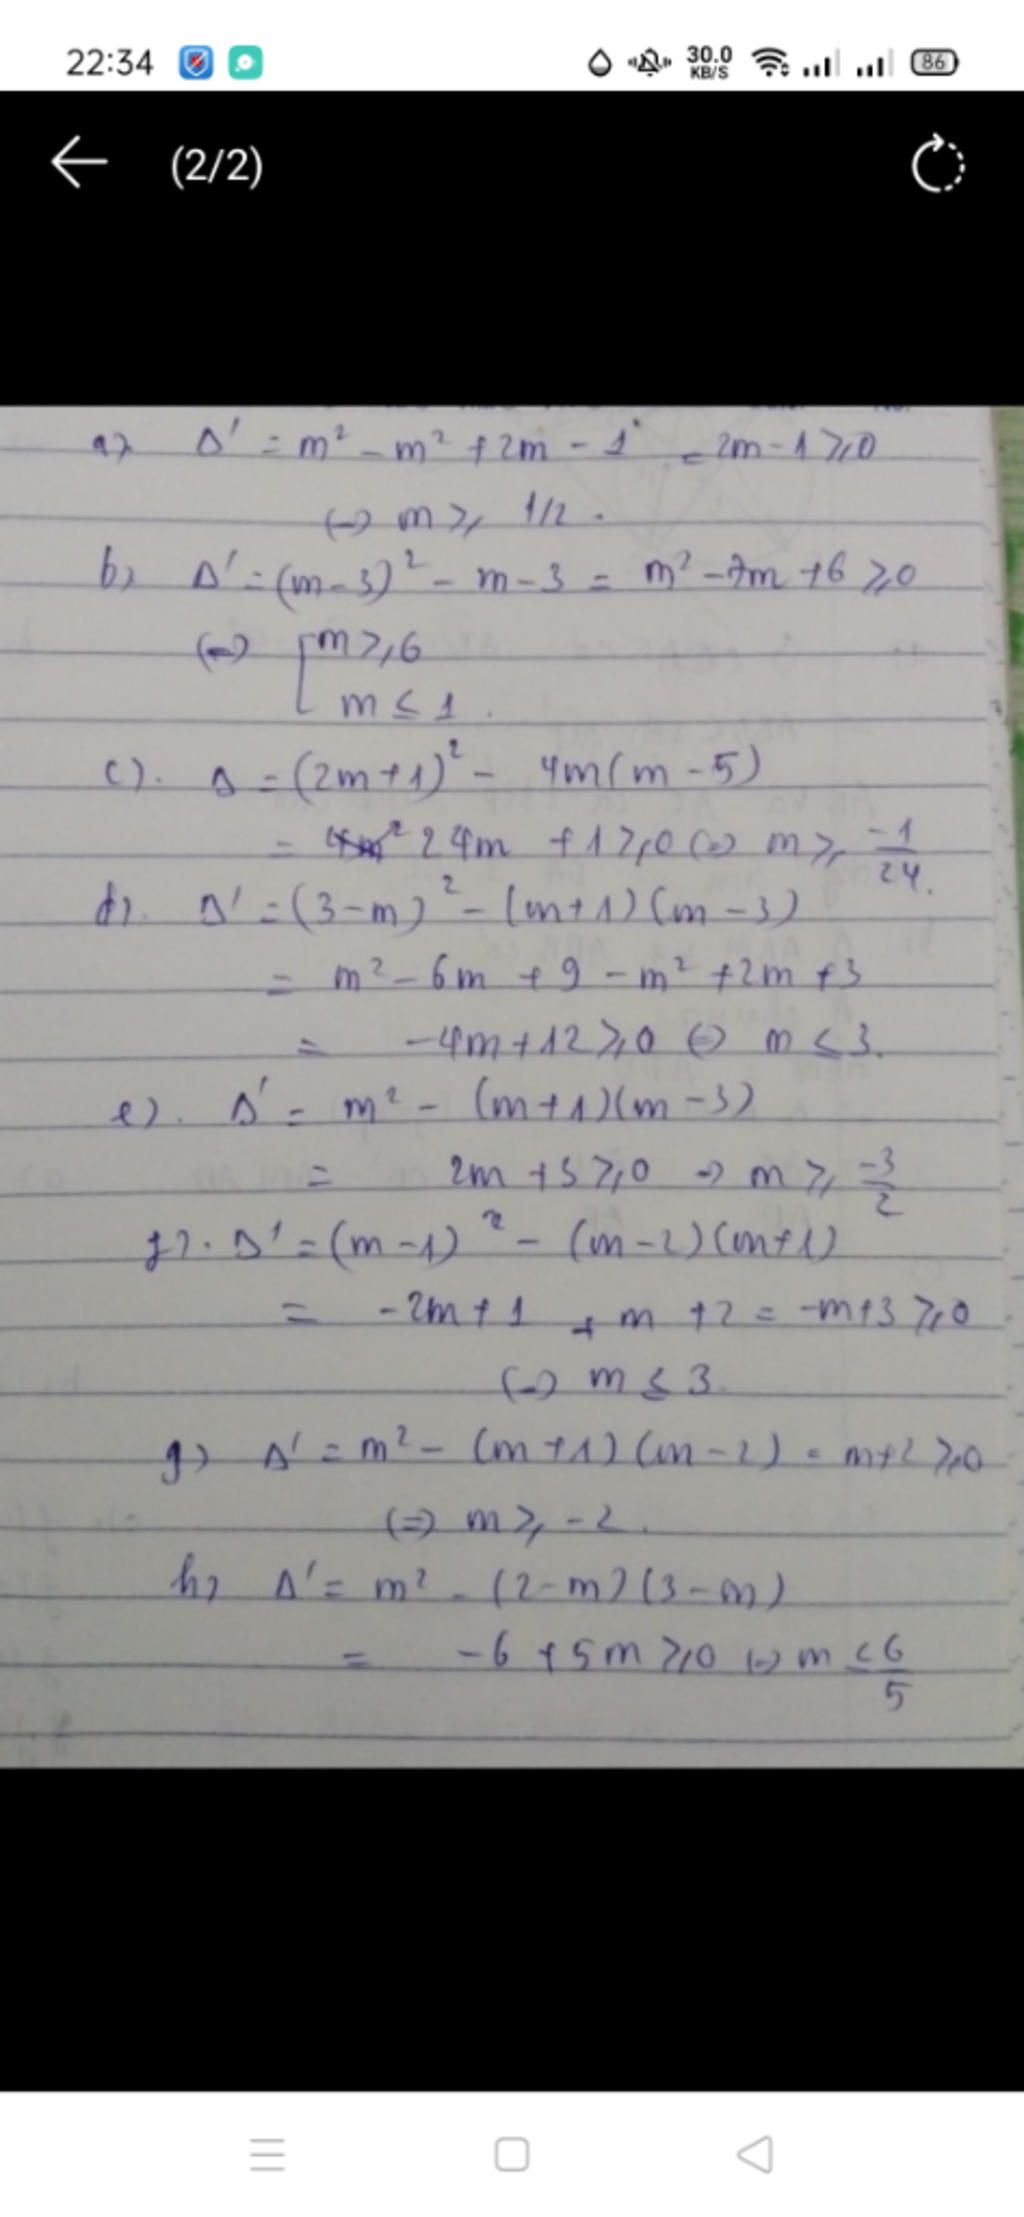 22:34
30.0
KB/S
86
(2/2)
a) Δ' = m² - m² + 2m - 1 = 2m - 1 ⩾ 0
(=) m ⩾ 1/2 .
b) Δ' = (m-3)² - m - 3 = m² - 7m + 6 ⩾ 0
(=) [ m ⩾ 6
m ≤ 1 .
c). Δ = (2m+1)² - 4m(m - 5)
= 24m + 1 ⩾ 0 (=) m ⩾ -1/24.
d). Δ' = (3-m)² - (m+1)(m-3)
= m² - 6m + 9 - m² + 2m + 3
= -4m + 12 ⩾ 0 (=) m ≤ 3.
e). Δ' = m² - (m+1)(m-3)
= 2m + 3 ⩾ 0 => m ⩾ -3/2
f). Δ' = (m-1)² - (m-2)(m+1)
= -2m + 1 + m + 2 = -m+3 ⩾ 0
(=) m ≤ 3.
g) Δ' = m² - (m+1)(m-2) = m+2 ⩾ 0
(=) m ⩾ -2.
h) Δ' = m² - (2-m)(3-m)
= -6 + 5m ⩾ 0 (=) m ≤ 6/5